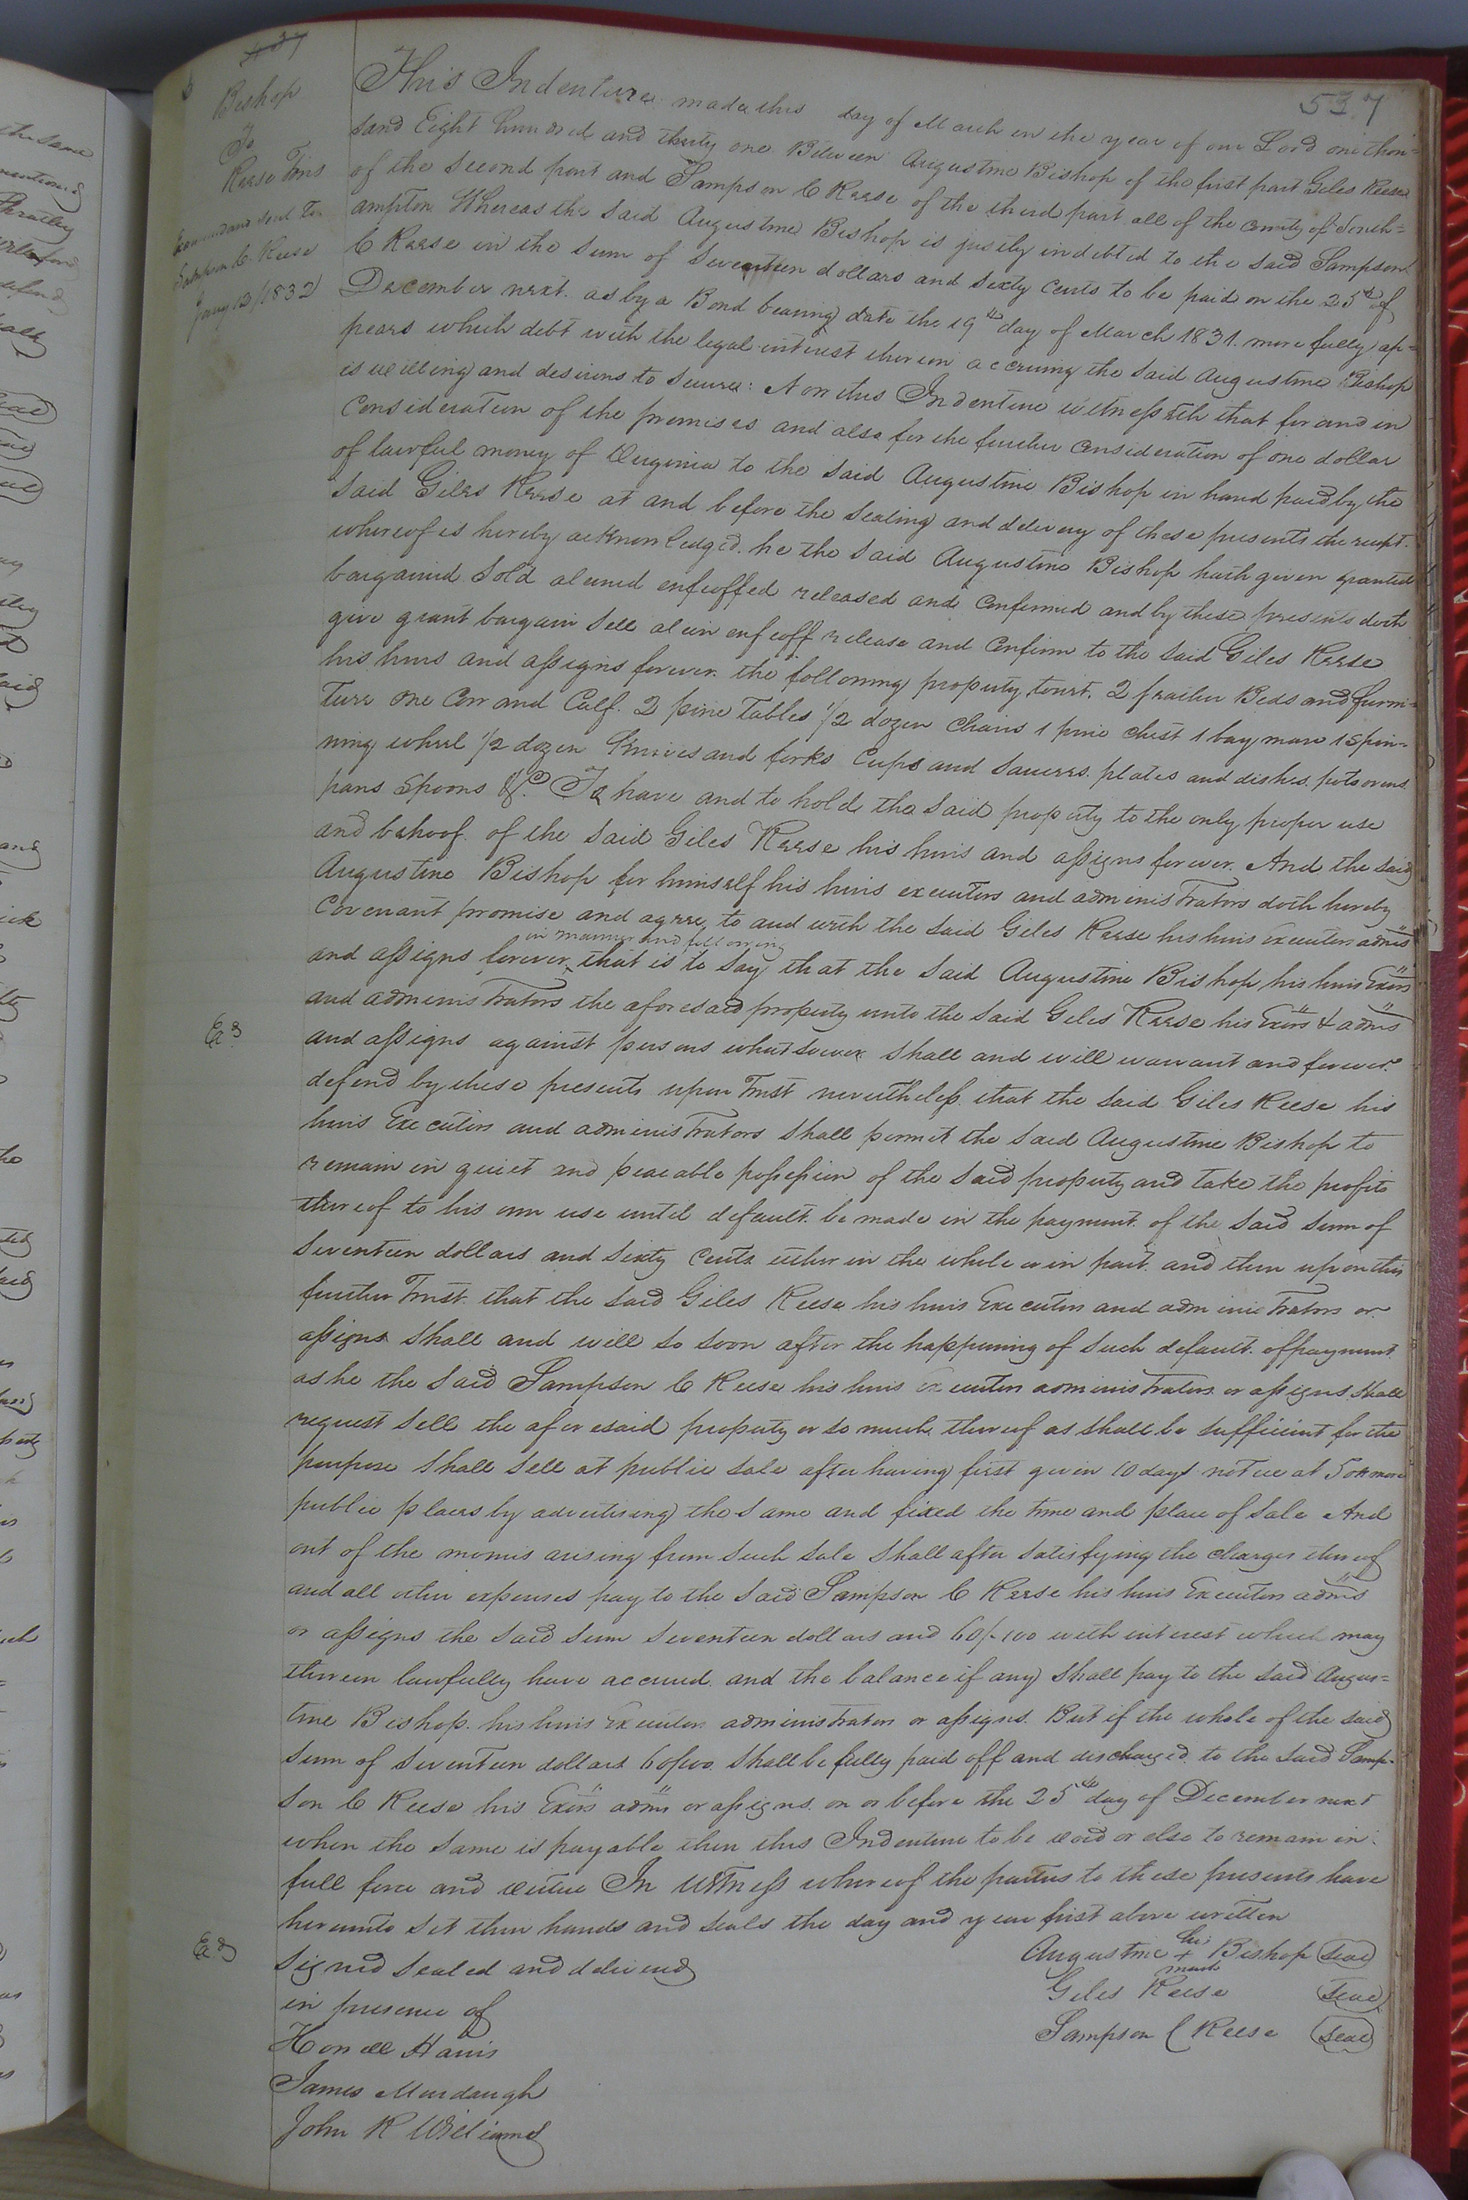 437
537
Bishop
To
Reese Trus
Examd and deld To
Sampson C. Reese
Jany 12/1832
This Indenture made this day of March in the year of our Lord one thou=
sand Eight hundred and thirty one Between Augustine Bishop of the first part Giles Reese
of the second part and Sampson C Reese of the third part all of the county of South=
ampton Whereas the said Augustine Bishop is justly indebted to the said Sampson
C Reese in the sum of Seventeen dollars and Sixty Cents to be paid on the 25th of
December next. as by a Bond bearing date the 19th day of March 1831. more fully ap=
pears which debt with the legal interest thereon accruing the said Augustine Bishop
is willing and desirous to secure: Now this Indenture witnesseth that for and in
Consideration of the premises and also for the further Consideration of one dollar
of lawful money of Virginia to the said Augustine Bishop in hand paid by the
said Giles Reese at and before the sealing and delivery of these presents the receipt.
whereof is hereby acknowledged. he the said Augustine Bishop hath given granted
bargained Sold aliened enfeoffed released and Confirmed and by these presents doth
give grant bargain Sell alien enfeoff release and Confirm to the said Giles Reese
his heirs and assigns forever. the following property, towit, 2 feather Beds and furni=
ture one Cow and Calf. 2 pine Tables 1/2 dozen chairs 1 pine chest 1 bay mare 1 Spin=
ning wheel 1/2 dozen Knives and forks Cups and Saucers. plates and dishes, pots ovens
pans Spoons &c. To have and to hold the said property to the only proper use
and behoof of the said Giles Reese his heirs and assigns forever. And the said
Augustine Bishop for himself his heirs executors and administrators doth hereby
Covenant promise and agree, to and with the said Giles Reese his heirs Executors adms
in manner and following
and assigns forever, that is to say, that the said Augustine Bishop, his heirs Exors
and administrators the aforesaid property unto the said Giles Reese his Exors & adms
Ex d
and assigns against persons whatsoever shall and will warrant and forever
defend by these presents upon Trust nevertheless. that the said Giles Reese his
heirs Executors and administrators shall permit the said Augustine Bishop to
remain in quiet and peaceable possession of the said property and take the profits
thereof to his own use until default. be made in the payment of the said sum of
Seventeen dollars and Sixty Cents either in the whole or in part. and then upon this
further Trust. that the said Giles Reese his heirs Executors and administrators or
assigns shall and will so soon after the happening of such default. of payment
as he the said Sampson C Reese his heirs executors administrators or assigns shall
request sell the aforesaid property or so much thereof as shall be sufficient for the
purpose shall sell at public sale after having first given 10 days notice at 5 or more
public places by advertising the same and fixed the time and place of sale And
out of the monies arising from such sale shall after satisfying the charges thereof
and all other expenses pay to the said Sampson C Reese his heirs Executors adms
or assigns the said sum Seventeen dollars and 60/100 with interest which may
thereon lawfully have accrued. and the balance if any shall pay to the said Augus=
tine Bishop. his heirs Executors administrators or assigns. But if the whole of the said
sum of Seventeen dollars 60/100. shall be fully paid off and discharged to the said Samp=
son C Reese his Exors adms or assigns. on or before the 25th day of December next
when the same is payable then this Indenture to be void or else to remain in
full force and virtue In Witness whereof the parties to these presents have
hereunto set their hands and seals the day and year first above written
Ex d
Signed sealed and delivered
in presence of
Howell Harris
James Murdaugh
John R Williams
Augustine his + mark Bishop Seal
Giles Reese Seal
Sampson C Reese Seal